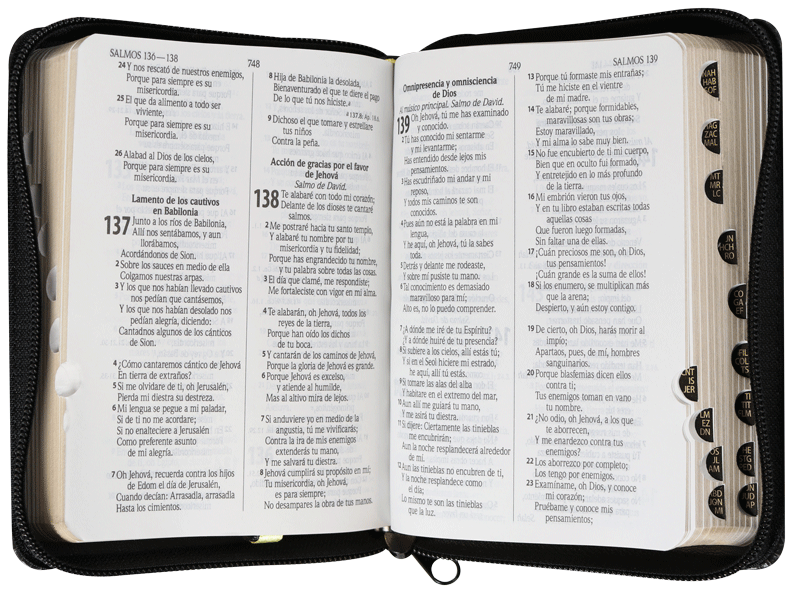 SALMOS 136—138
748
24 Y nos rescató de nuestros enemigos,
Porque para siempre es su
misericordia.
25 El que da alimento a todo ser
viviente,
Porque para siempre es su
misericordia.
26 Alabad al Dios de los cielos,
Porque para siempre es su
misericordia.
Lamento de los cautivos
en Babilonia
137 Junto a los ríos de Babilonia,
Allí nos sentábamos, y aun
llorábamos,
Acordándonos de Sion.
2 Sobre los sauces en medio de ella
Colgamos nuestras arpas.
3 Y los que nos habían llevado cautivos
nos pedían que cantásemos,
Y los que nos habían desolado nos
pedían alegría, diciendo:
Cantadnos algunos de los cánticos
de Sion.
4 ¿Cómo cantaremos cántico de Jehová
En tierra de extraños?
5 Si me olvidare de ti, oh Jerusalén,
Pierda mi diestra su destreza.
6 Mi lengua se pegue a mi paladar,
Si de ti no me acordare;
Si no enalteciere a Jerusalén
Como preferente asunto
de mi alegría.
7 Oh Jehová, recuerda contra los hijos
de Edom el día de Jerusalén,
Cuando decían: Arrasadla, arrasadla
Hasta los cimientos.
8 Hija de Babilonia la desolada,
Bienaventurado el que te diere el pago
De lo que tú nos hiciste.
9 Dichoso el que tomare y estrellare
tus niños
Contra la peña.
Acción de gracias por el favor
de Jehová
Salmo de David.
138 Te alabaré con todo mi corazón;
Delante de los dioses te cantaré
salmos.
2 Me postraré hacia tu santo templo,
Y alabaré tu nombre por tu
misericordia y tu fidelidad;
Porque has engrandecido tu nombre,
y tu palabra sobre todas las cosas.
3 El día que clamé, me respondiste;
Me fortaleciste con vigor en mi alma.
4 Te alabarán, oh Jehová, todos los
reyes de la tierra,
Porque han oído los dichos
de tu boca.
5 Y cantarán de los caminos de Jehová,
Porque la gloria de Jehová es grande.
6 Porque Jehová es excelso,
y atiende al humilde,
Mas al altivo mira de lejos.
7 Si anduviere yo en medio de la
angustia, tú me vivificarás;
Contra la ira de mis enemigos
extenderás tu mano,
Y me salvará tu diestra.
8 Jehová cumplirá su propósito en mí;
Tu misericordia, oh Jehová,
es para siempre;
No desampares la obra de tus manos.
749
SALMOS 139
Omnipresencia y omnisciencia
de Dios
Al músico principal. Salmo de David.
139 Oh Jehová, tú me has examinado
y conocido.
2 Tú has conocido mi sentarme
y mi levantarme;
Has entendido desde lejos mis
pensamientos.
3 Has escudriñado mi andar y mi
reposo,
Y todos mis caminos te son
conocidos.
4 Pues aún no está la palabra en mi
lengua,
Y he aquí, oh Jehová, tú la sabes
toda.
5 Detrás y delante me rodeaste,
Y sobre mí pusiste tu mano.
6 Tal conocimiento es demasiado
maravilloso para mí;
Alto es, no lo puedo comprender.
7 ¿A dónde me iré de tu Espíritu?
¿Y a dónde huiré de tu presencia?
8 Si subiere a los cielos, allí estás tú;
Y si en el Seol hiciere mi estrado,
he aquí, allí tú estás.
9 Si tomare las alas del alba
Y habitare en el extremo del mar,
10 Aun allí me guiará tu mano,
Y me asirá tu diestra.
11 Si dijere: Ciertamente las tinieblas
me encubrirán;
Aun la noche resplandecerá alrededor
de mí.
12 Aun las tinieblas no encubren de ti,
Y la noche resplandece como
el día;
Lo mismo te son las tinieblas
que la luz.
13 Porque tú formaste mis entrañas;
Tú me hiciste en el vientre
de mi madre.
14 Te alabaré; porque formidables,
maravillosas son tus obras;
Estoy maravillado,
Y mi alma lo sabe muy bien.
15 No fue encubierto de ti mi cuerpo,
Bien que en oculto fui formado,
Y entretejido en lo más profundo
de la tierra.
16 Mi embrión vieron tus ojos,
Y en tu libro estaban escritas todas
aquellas cosas
Que fueron luego formadas,
Sin faltar una de ellas.
17 ¡Cuán preciosos me son, oh Dios,
tus pensamientos!
¡Cuán grande es la suma de ellos!
18 Si los enumero, se multiplican más
que la arena;
Despierto, y aún estoy contigo.
19 De cierto, oh Dios, harás morir al
impío;
Apartaos, pues, de mí, hombres
sanguinarios.
20 Porque blasfemias dicen ellos
contra ti;
Tus enemigos toman en vano
tu nombre.
21 ¿No odio, oh Jehová, a los que
te aborrecen,
Y me enardezco contra tus
enemigos?
22 Los aborrezco por completo;
Los tengo por enemigos.
23 Examíname, oh Dios, y conoce
mi corazón;
Pruébame y conoce mis
pensamientos;
ZAC
MAL
MT
MR
LC
FIL
COL